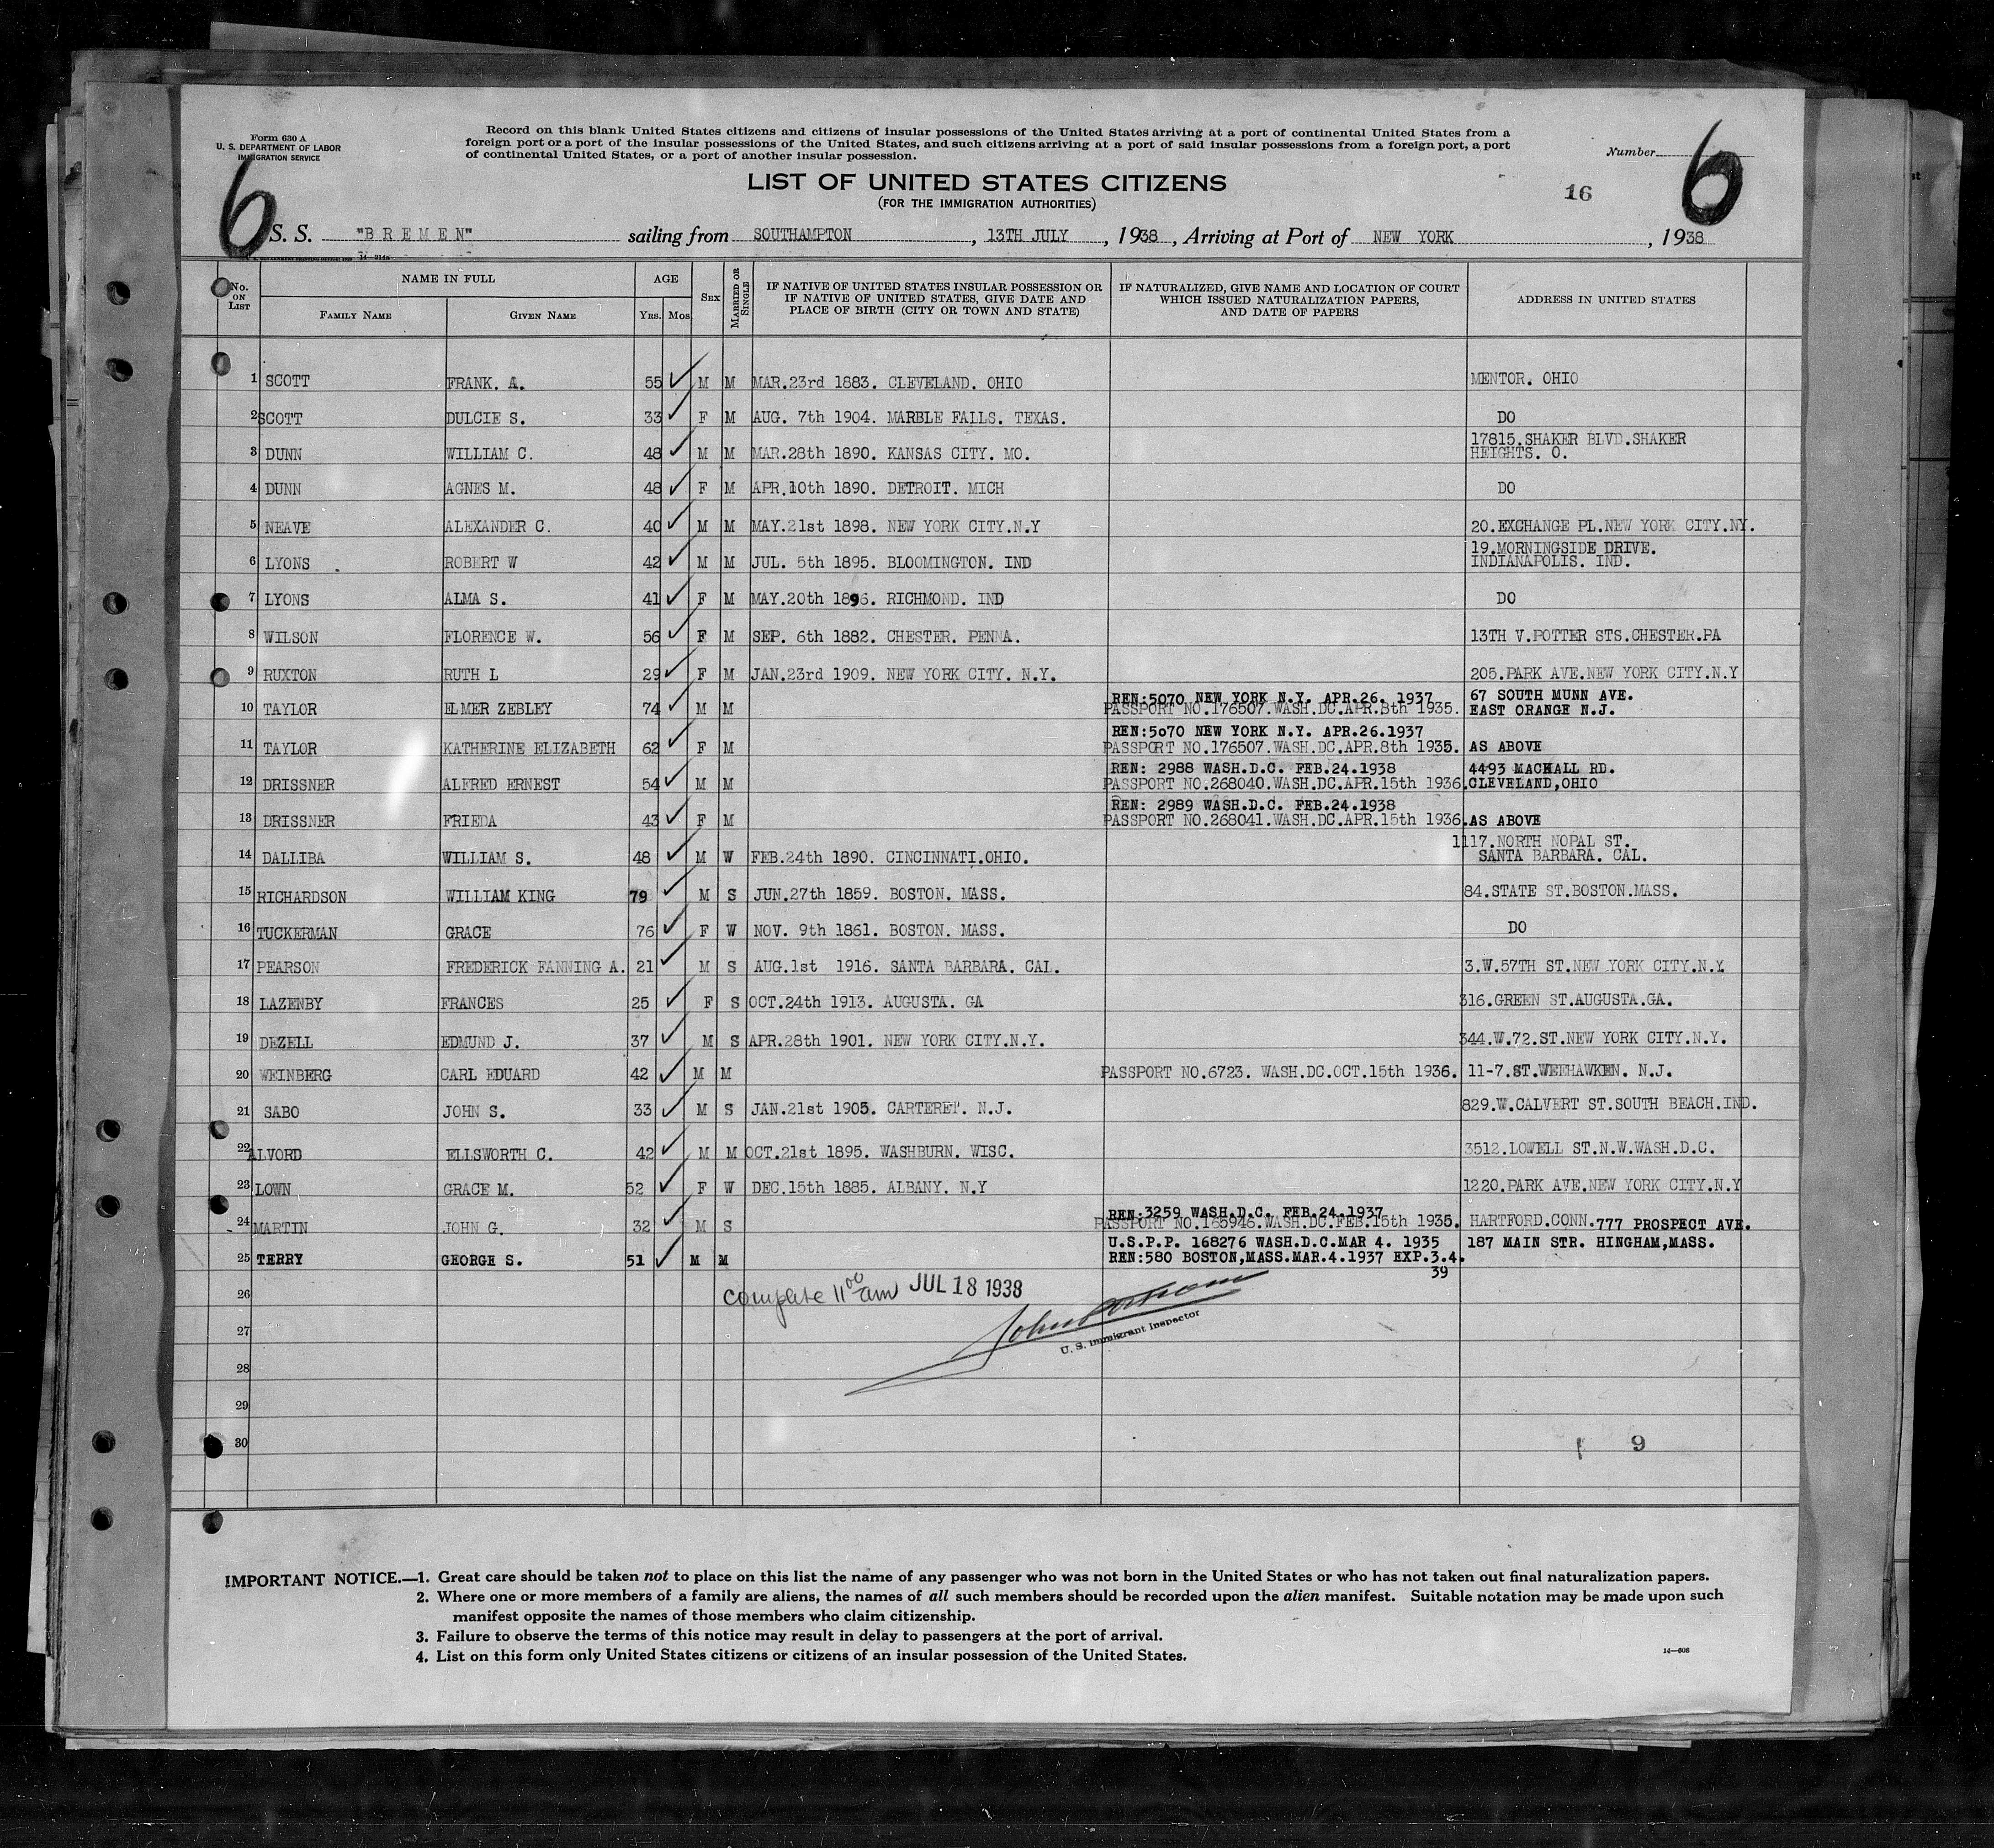 Form 630 A
U. S. DEPARTMENT OF LABOR
IMMIGRATION SERVICE
Record on this blank United States citizens and citizens of insular possessions of the United States arriving at a port of continental United States from a
foreign port or a port of the insular possessions of the United States, and such citizens arriving at a port of said insular possessions from a foreign port, a port
of continental United States, or a port of another insular possession.
Number
6
6
LIST OF UNITED STATES CITIZENS
(FOR THE IMMIGRATION AUTHORITIES)
16
S. S. "BREMEN" sailing from SOUTHAMPTON, 13TH JULY, 1938, Arriving at Port of NEW YORK, 1938
No. ON LIST
NAME IN FULL
FAMILY NAME
GIVEN NAME
AGE
YRS. MOS
SEX
MARRIED OR SINGLE
IF NATIVE OF UNITED STATES INSULAR POSSESSION OR
IF NATIVE OF UNITED STATES, GIVE DATE AND
PLACE OF BIRTH (CITY OR TOWN AND STATE)
IF NATURALIZED, GIVE NAME AND LOCATION OF COURT
WHICH ISSUED NATURALIZATION PAPERS,
AND DATE OF PAPERS
ADDRESS IN UNITED STATES
1 SCOTT FRANK. A. 55 M M MAR.23rd 1883. CLEVELAND. OHIO MENTOR. OHIO
2 SCOTT DULCIE S. 33 F M AUG. 7th 1904. MARBLE FALLS. TEXAS. DO
3 DUNN WILLIAM C. 48 M M MAR.28th 1890. KANSAS CITY. MO. 17815.SHAKER BLVD.SHAKER
HEIGHTS. O.
4 DUNN AGNES M. 48 F M APR.10th 1890. DETROIT. MICH DO
5 NEAVE ALEXANDER C. 40 M M MAY.21st 1898. NEW YORK CITY.N.Y 20.EXCHANGE PL.NEW YORK CITY.NY.
6 LYONS ROBERT W 42 M M JUL. 5th 1895. BLOOMINGTON. IND 19.MORNINGSIDE DRIVE.
INDIANAPOLIS. IND.
7 LYONS ALMA S. 41 F M MAY.20th 1896. RICHMOND. IND DO
8 WILSON FLORENCE W. 56 F M SEP. 6th 1882. CHESTER. PENNA. 13TH V.POTTER STS.CHESTER.PA
9 RUXTON RUTH L 29 F M JAN.23rd 1909. NEW YORK CITY. N.Y. 205.PARK AVE.NEW YORK CITY.N.Y
REN:5070 NEW YORK N.Y. APR.26. 1937 67 SOUTH MUNN AVE.
10 TAYLOR ELMER ZEBLEY 74 M M PASSPORT NO.176507.WASH.DC.APR.8th 1935. EAST ORANGE N.J.
REN:5070 NEW YORK N.Y. APR.26.1937
11 TAYLOR KATHERINE ELIZABETH 62 F M PASSPORT NO.176507.WASH.DC.APR.8th 1935. AS ABOVE
REN: 2988 WASH.D.C. FEB.24.1938 4493 MACKALL RD.
12 DRISSNER ALFRED ERNEST 54 M M PASSPORT NO.268040.WASH.DC.APR.15th 1936. CLEVELAND,OHIO
REN: 2989 WASH.D.C. FEB.24.1938
13 DRISSNER FRIEDA 43 F M PASSPORT NO.268041.WASH.DC.APR.15th 1936. AS ABOVE
14 DALLIBA WILLIAM S. 48 M W FEB.24th 1890. CINCINNATI.OHIO. 1117.NORTH NOPAL ST.
SANTA BARBARA. CAL.
15 RICHARDSON WILLIAM KING 79 M S JUN.27th 1859. BOSTON. MASS. 84.STATE ST.BOSTON.MASS.
16 TUCKERMAN GRACE 76 F W NOV. 9th 1861. BOSTON. MASS. DO
17 PEARSON FREDERICK FANNING A. 21 M S AUG.1st 1916. SANTA BARBARA. CAL. 3.W.57TH ST.NEW YORK CITY.N.Y
18 LAZENBY FRANCES 25 F S OCT.24th 1913. AUGUSTA. GA 316.GREEN ST.AUGUSTA.GA.
19 DEZELL EDMUND J. 37 M S APR.28th 1901. NEW YORK CITY.N.Y. 344.W.72.ST.NEW YORK CITY.N.Y.
20 WEINBERG CARL EDUARD 42 M M PASSPORT NO.6723. WASH.DC.OCT.15th 1936. 11-7.ST.WEEHAWKEN. N.J.
21 SABO JOHN S. 33 M S JAN.21st 1905. CARTERET. N.J. 829.W.CALVERT ST.SOUTH BEACH.IND.
22 ALVORD ELLSWORTH C. 42 M M OCT.21st 1895. WASHBURN. WISC. 3512.LOWELL ST.N.W.WASH.D.C.
23 LOWN GRACE M. 52 F W DEC.15th 1885. ALBANY. N.Y 1220.PARK AVE.NEW YORK CITY.N.Y
REN:3259 WASH.D.C. FEB.24.1937
24 MARTIN JOHN G. 32 M S PASSPORT NO.165946.WASH.DC.FEB.15th 1935. HARTFORD.CONN.777 PROSPECT AVE.
U.S.P.P. 168276 WASH.D.C.MAR 4. 1935 187 MAIN STR. HINGHAM,MASS.
25 TERRY GEORGE S. 51 M M REN:580 BOSTON,MASS.MAR.4.1937 EXP.3.4.
39
26
complete 11 00 am JUL 18 1938
27
U. S. Immigrant Inspector
28
29
30
9
IMPORTANT NOTICE.—1. Great care should be taken not to place on this list the name of any passenger who was not born in the United States or who has not taken out final naturalization papers.
2. Where one or more members of a family are aliens, the names of all such members should be recorded upon the alien manifest. Suitable notation may be made upon such
manifest opposite the names of those members who claim citizenship.
3. Failure to observe the terms of this notice may result in delay to passengers at the port of arrival.
4. List on this form only United States citizens or citizens of an insular possession of the United States.
14—608